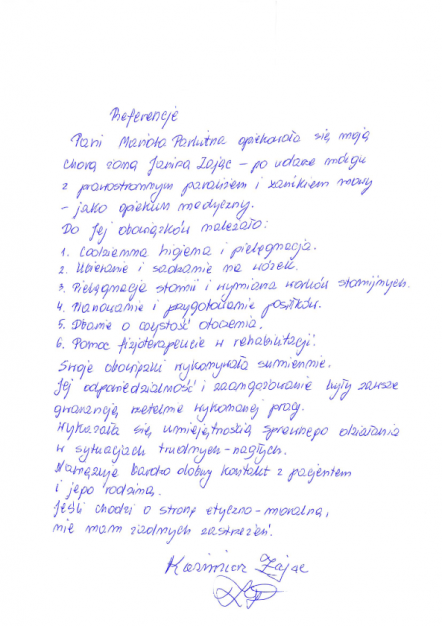 Referencje
Pani Mariola opiekowała się moją
chorą żoną Janiną Zając - po udarze mózgu
z prawostronnym paraliżem i zanikiem mowy
- jako opiekun medyczny.
Do Jej obowiązków należało:
1. Codzienna higiena i pielęgnacja.
2. Ubieranie i sadzanie na wózek.
3. Pielęgnacja stomii i wymiana worków stomijnych.
4. Planowanie i przygotowanie posiłków.
5. Dbanie o czystość otoczenia.
6. Pomoc fizjoterapeucie w rehabilitacji.
Swoje obowiązki wykonywała sumiennie.
Jej odpowiedzialność i zaangażowanie były zawsze
gwarancją rzetelnie wykonanej pracy.
Wykazała się umiejętnością sprawnego działania
w sytuacjach trudnych - nagłych.
Nawiązuje bardzo dobry kontakt z pacjentem
i jego rodziną.
Jeśli chodzi o stronę etyczno - moralną,
nie mam żadnych zastrzeżeń.
Kazimierz Zając